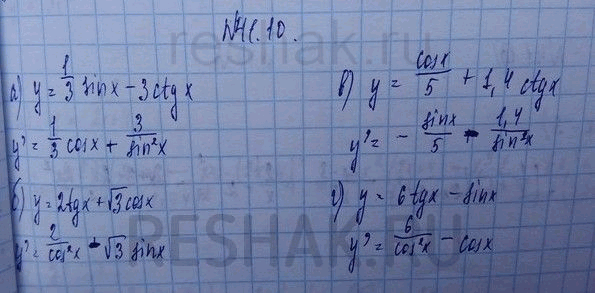 №41.10.
а) y = 1/3 sinx - 3ctgx
y' = 1/3 cosx + 3/sin²x
б) y = 2tgx + √3 cosx
y' = 2/cos²x - √3 sinx
в) y = cosx/5 + 1,4 ctgx
y' = - sinx/5 - 1,4/sin²x
г) y = 6tgx - sinx
y' = 6/cos²x - cosx
reshak.ru
RESHAK.RU